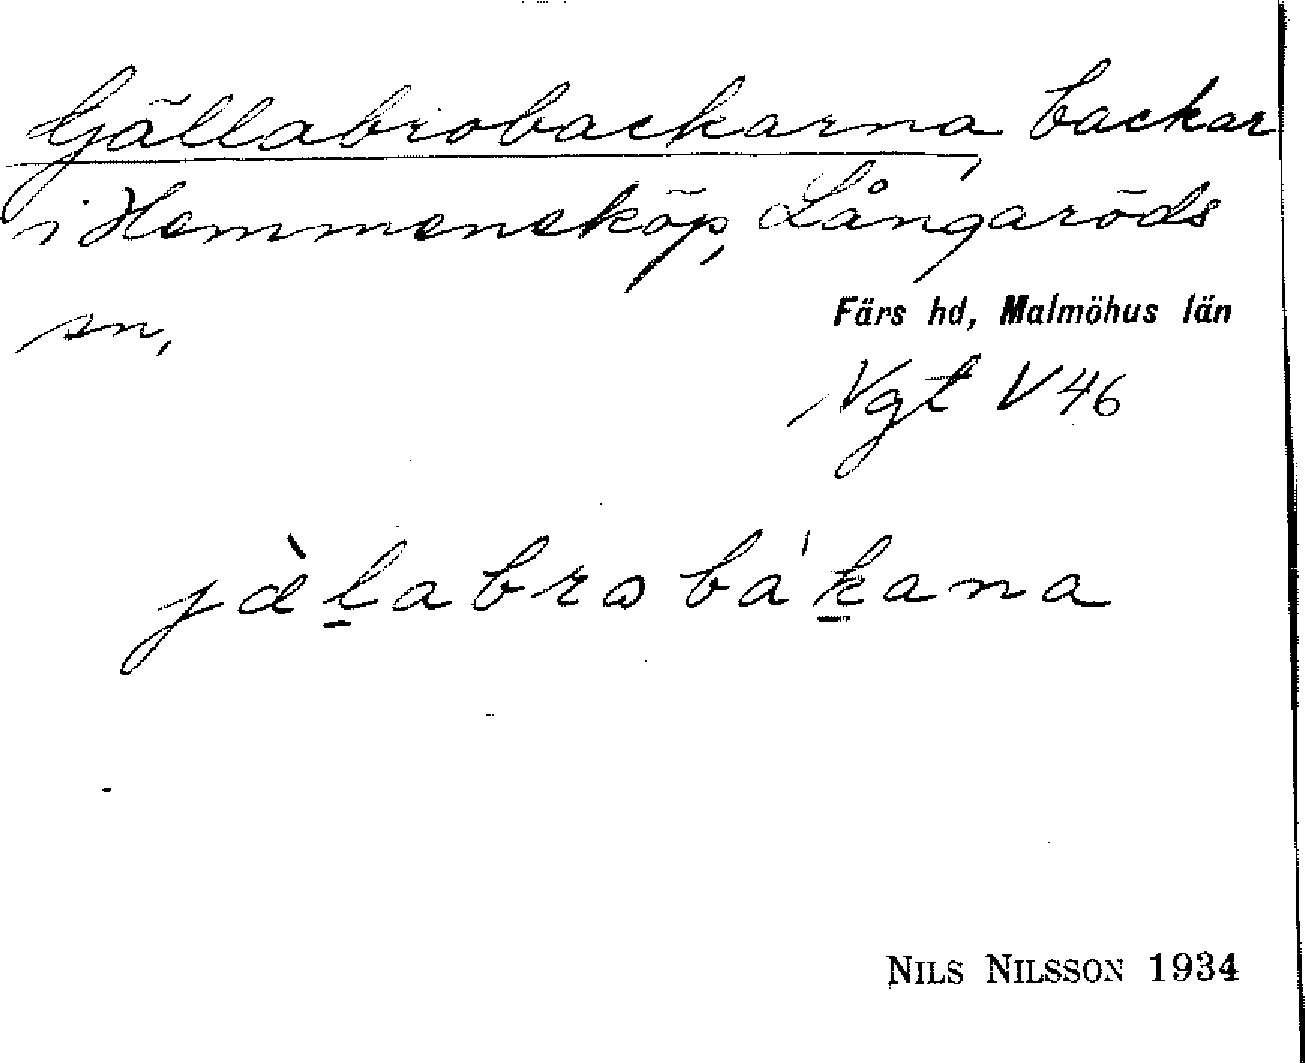 Gällabrobackarna, backar
i Hemmeneköp, Långaröds
sn,
Färs hd, Malmöhus län
Vgt V 46
jæ̀l̠abrobá'k̠ana
NILS NILSSON 1934